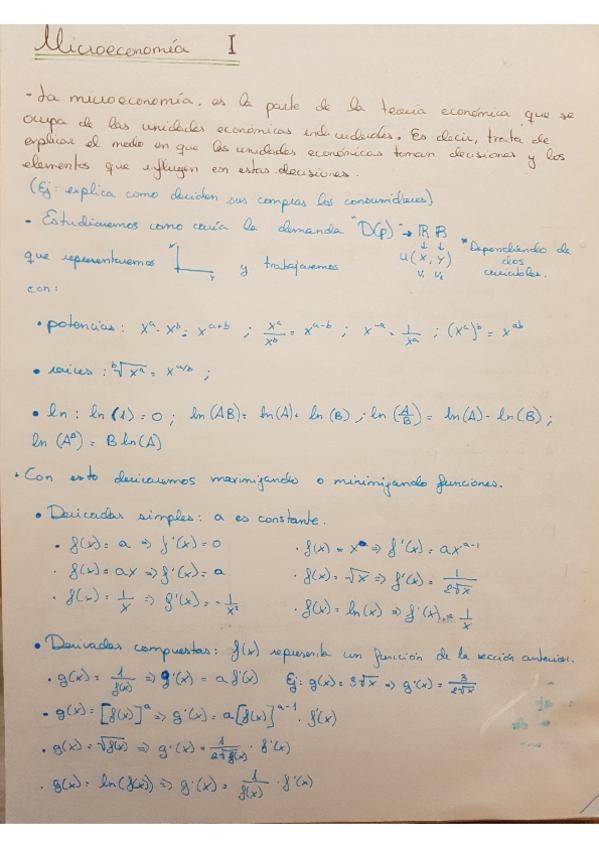 Microeconomía I
- La microeconomía. es la parte de la teoría económica que se
ocupa de las unidades económicas individuales. Es decir, trata de
explicar el modo en que las unidades económicas toman decisiones y los
elementos que influyen en estas decisiones.
(Ej: explica como deciden sus compras los consumidores)
- Estudiaremos como varía la demanda "D(p)" → 
que representaremos y trabajaremos U(X, Y) *Dependiendo de
dos
variables.
con:
• potencias: x^a · x^b = x^{a+b} ; x^a/x^b = x^{a-b} ; x^{-a} = 1/x^a ; (x^a)^b = x^{ab}
• raíces: ᵇ√x^a = x^{a/b} ;
• ln: ln(1) = 0 ; ln(AB) = ln(A) + ln(B) ; ln(A/B) = ln(A) - ln(B) ;
ln(A^B) = B ln(A)
• Con esto derivaremos maximizando o minimizando funciones.
• Derivadas simples: a es constante.
· f(x) = a ⇒ f'(x) = 0 · f(x) = x^a ⇒ f'(x) = ax^{a-1}
· f(x) = ax ⇒ f'(x) = a · f(x) = √x ⇒ f'(x) = 1/2√x
· f(x) = 1/x ⇒ f'(x) = -1/x² · f(x) = ln(x) ⇒ f'(x) = 1/x
• Derivadas compuestas: f(x) representa un función de la sección anterior.
· g(x) = 1/f(x) ⇒ g'(x) = a f'(x) Ej: g(x) = 3√x ⇒ g'(x) = 3/2√x
· g(x) = [f(x)]^a ⇒ g'(x) = a[f(x)]^{a-1} · f'(x)
· g(x) = √f(x) ⇒ g'(x) = 1/2√f(x) · f'(x)
· g(x) = ln(f(x)) ⇒ g'(x) = 1/f(x) · f'(x)